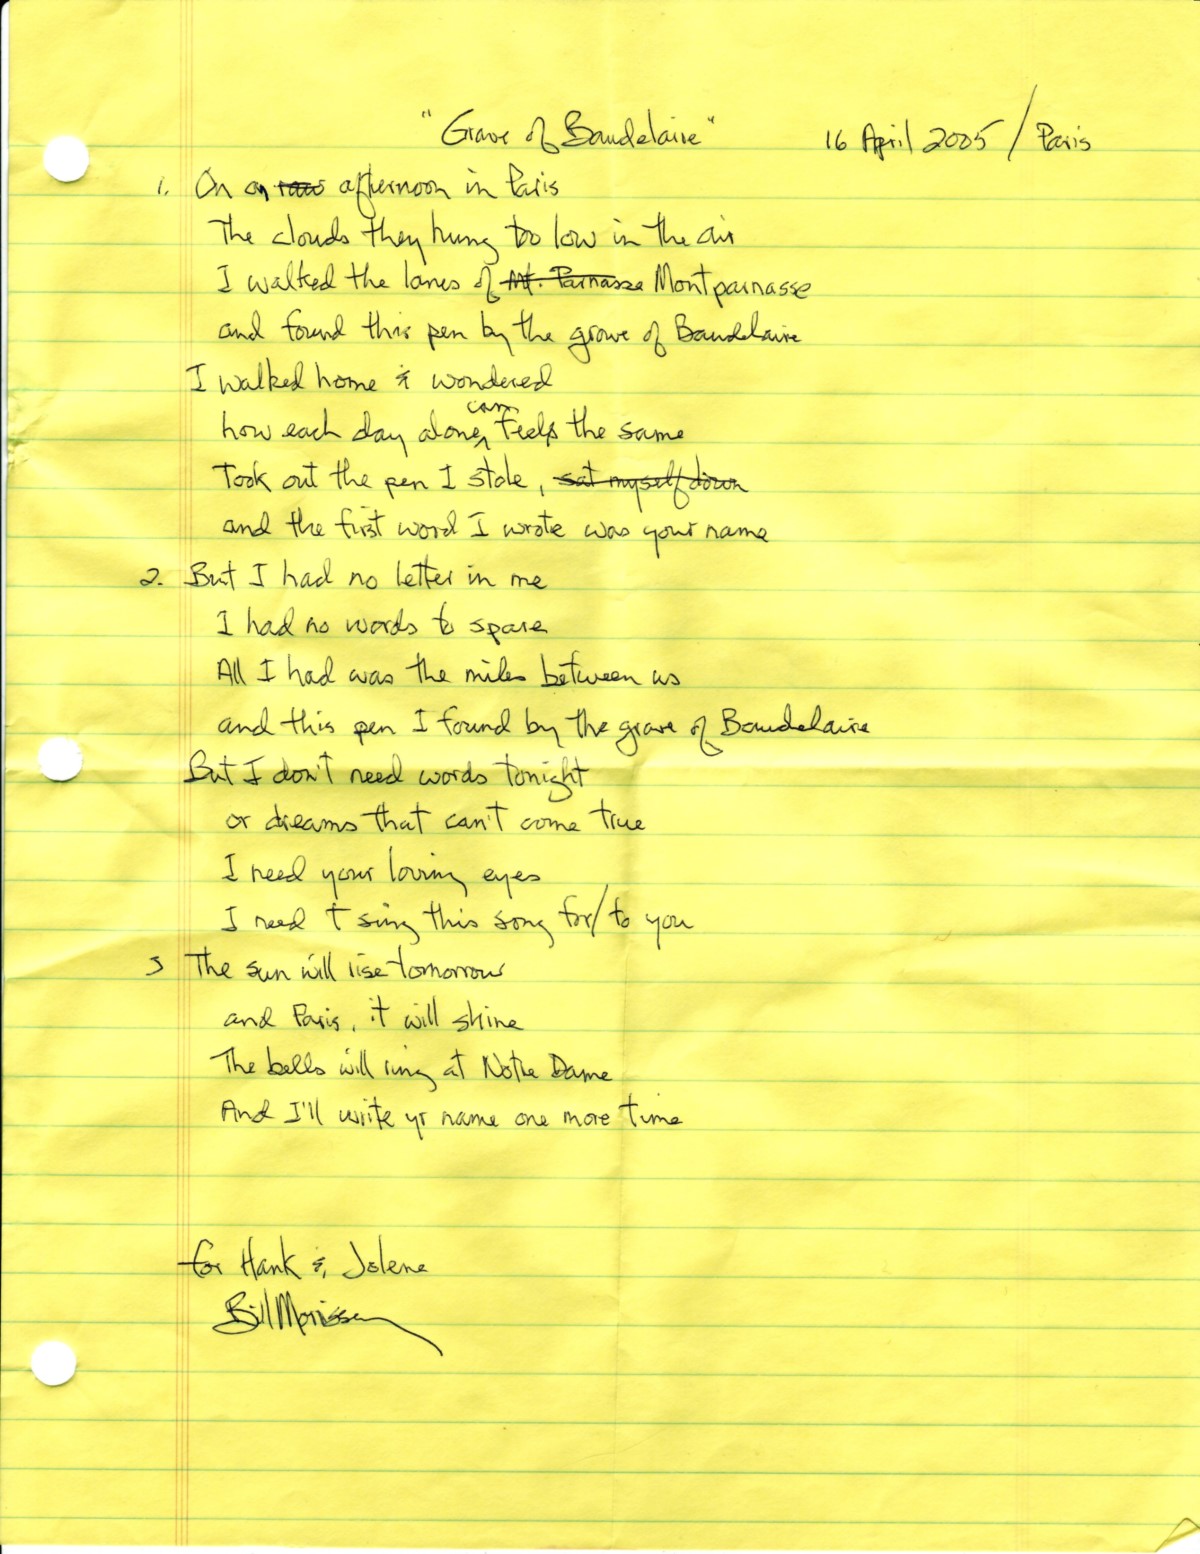 "Grave of Baudelaire" 16 April 2005 / Paris
1. On an raw afternoon in Paris
The clouds they hung too low in the air
I walked the lanes of Mt. Parnasse Montparnasse
and found this pen by the grave of Baudelaire
I walked home & wondered
how each day alone can feels the same
Took out the pen I stole, sat myself down
and the first word I wrote was your name
2. But I had no letter in me
I had no words to spare
All I had was the miles between us
and this pen I found by the grave of Baudelaire
But I don't need words tonight
or dreams that can't come true
I need your loving eyes
I need t sing this song for/to you
3 The sun will rise tomorrow
and Paris, it will shine
The bells will ring at Notre Dame
And I'll write yr name one more time
for Hank & Jolene
Bill Morrissey